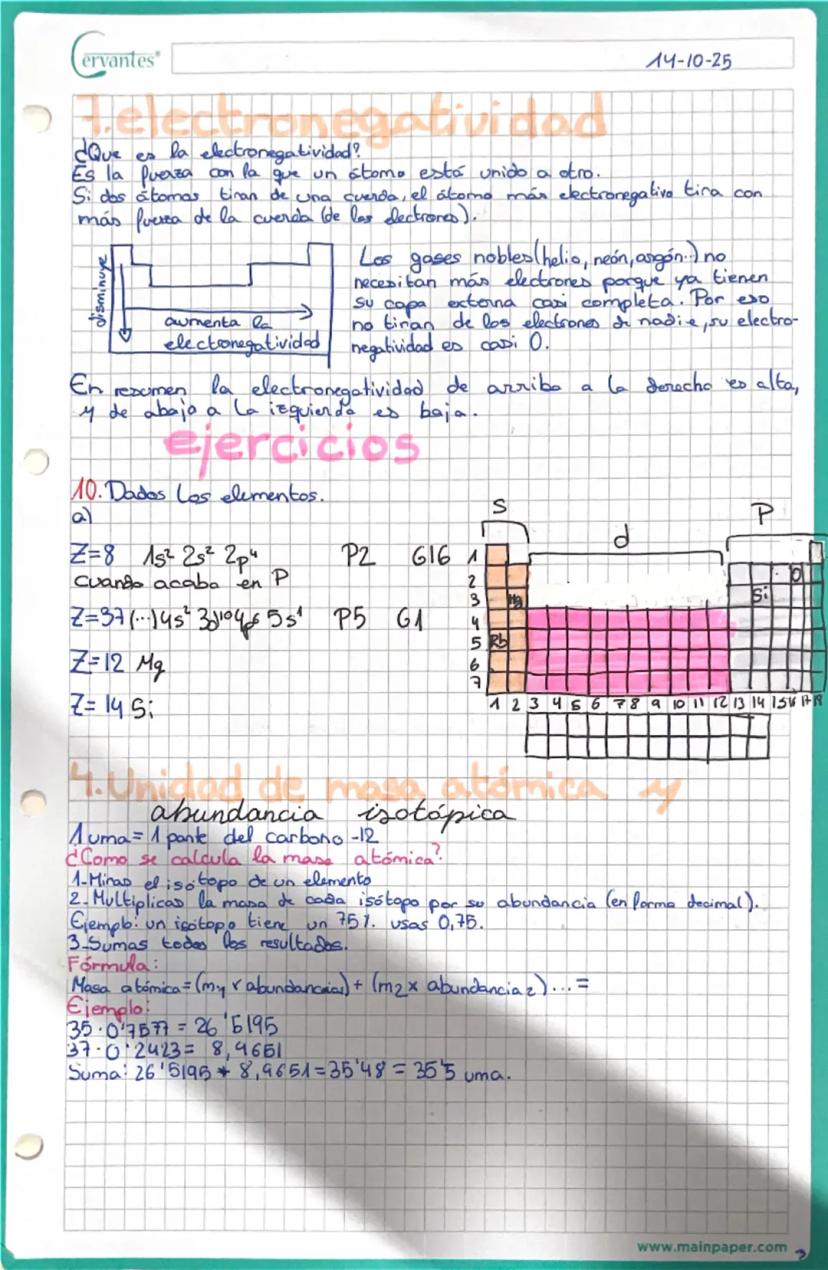 Cervantes®
14-10-25
7. electronegatividad
¿Que es la electronegatividad?
Es la fuerza con la que un átomo está unido a otro.
Si dos átomos tiran de una cuerda, el átomo más electronegativo tira con
más fuerza de la cuerda (de los electrones).
disminuye
aumenta la
electronegatividad
Los gases nobles (helio, neón, argón..) no
necesitan más electrones porque ya tienen
su capa externa casi completa. Por eso
no tiran de los electrones de nadie, su electro-
negatividad es casi 0.
En resumen la electronegatividad de arriba a la derecha es alta,
y de abajo a la izquierda es baja.
ejercicios
10. Dados los elementos.
a)
Z=8 1s² 2s² 2p⁴ P2 G16
cuando acaba en P
Z=37 (...) 4s² 3d¹⁰ 4p⁶ 5s¹ P5 G1
Z=12 Mg
Z=14 Si
S
d
P
1
2 O
3 Mg Si
4
5 Rb
6
7
1 2 3 4 5 6 7 8 9 10 11 12 13 14 15 16 17 18
4. Unidad de masa atómica y
abundancia isotópica
1 uma = 1 parte del carbono -12
¿Como se calcula la masa atómica?
1-Miras el isótopo de un elemento
2-Multiplicas la masa de cada isótopo por su abundancia (en forma decimal).
Ejemplo: un isótopo tiene un 75%. usas 0,75.
3-Sumas todos los resultados.
Fórmula:
Masa atómica = (m1 x abundancia1) + (m2 x abundancia2) ... =
Ejemplo:
35·0'7577 = 26'5195
37·0'2423 = 8,9651
Suma: 26'5195 + 8,9651 = 35'48 = 35'5 uma.
www.mainpaper.com